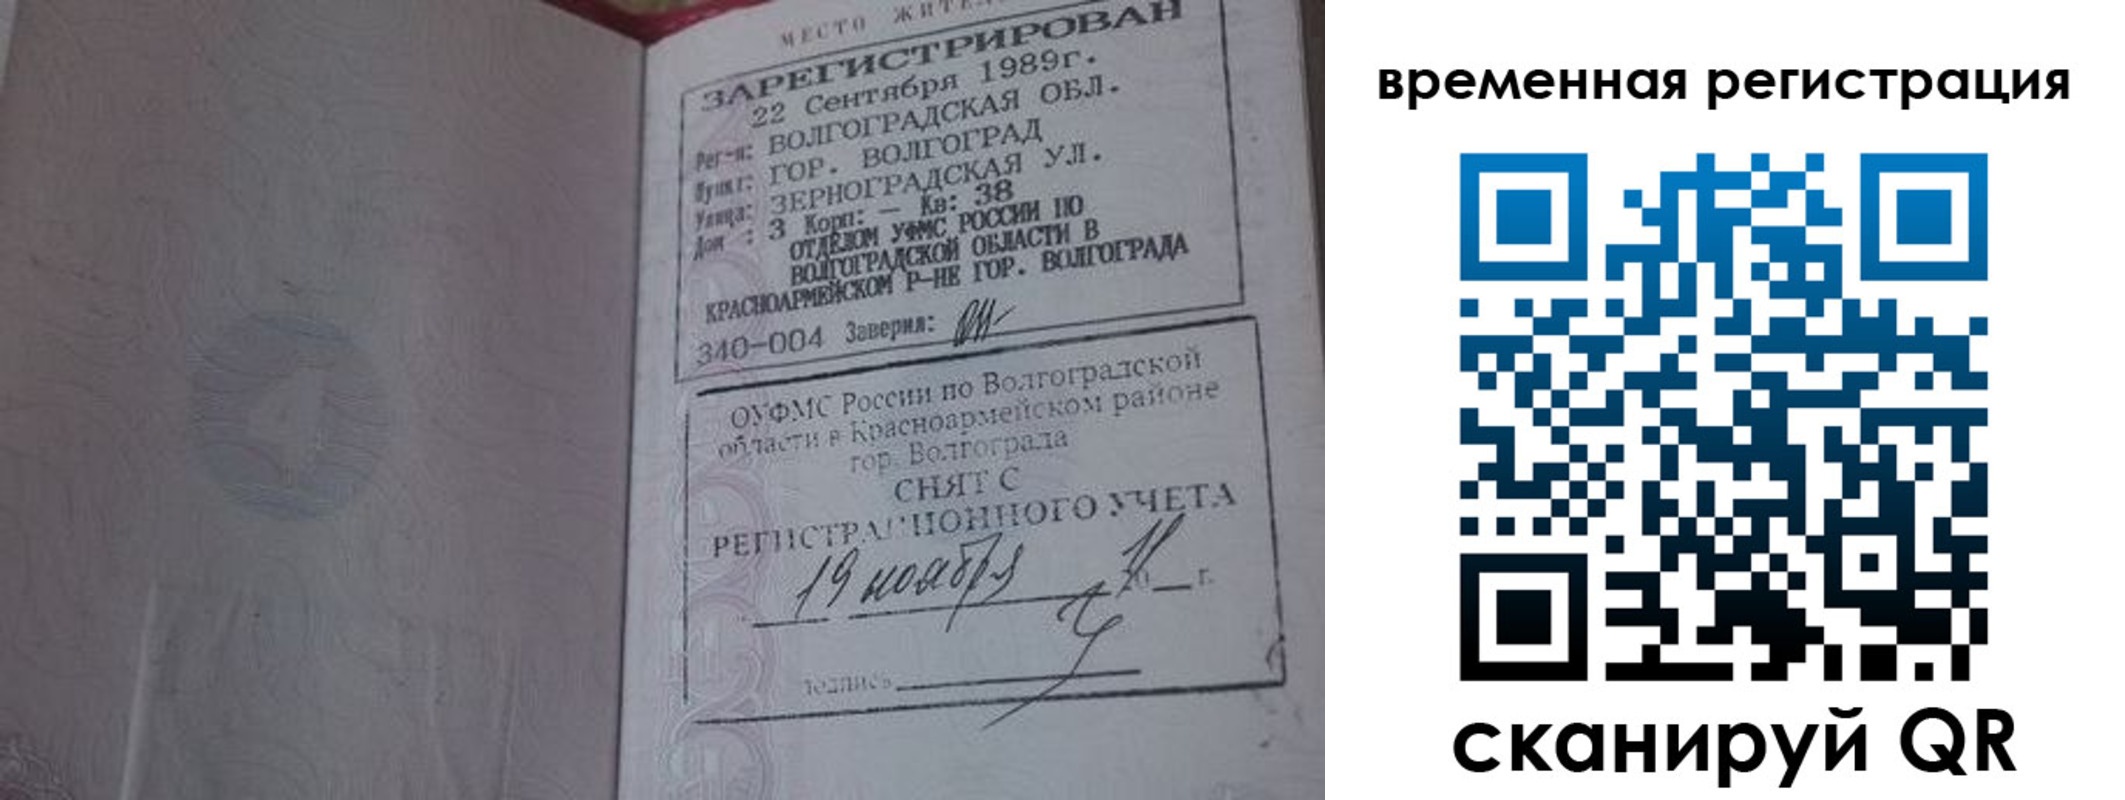 МЕСТО ЖИТЕЛ
ЗАРЕГИСТРИРОВАН
22 Сентября 1989г.
Рег-н: ВОЛГОГРАДСКАЯ ОБЛ.
Пункт: ГОР. ВОЛГОГРАД
Улица: ЗЕРНОГРАДСКАЯ УЛ.
Дом : 3 Корп: — Кв: 38
ОТДЕЛОМ УФМС РОССИИ ПО
ВОЛГОГРАДСКОЙ ОБЛАСТИ В
КРАСНОАРМЕЙСКОМ Р-НЕ ГОР. ВОЛГОГРАДА
340-004 Заверил:
ОУФМС России по Волгоградской
области в Красноармейском районе
гор. Волгограда
СНЯТ С
РЕГИСТРАЦИОННОГО УЧЕТА
19 ноября 20 г.
подпись
временная регистрация
сканируй QR